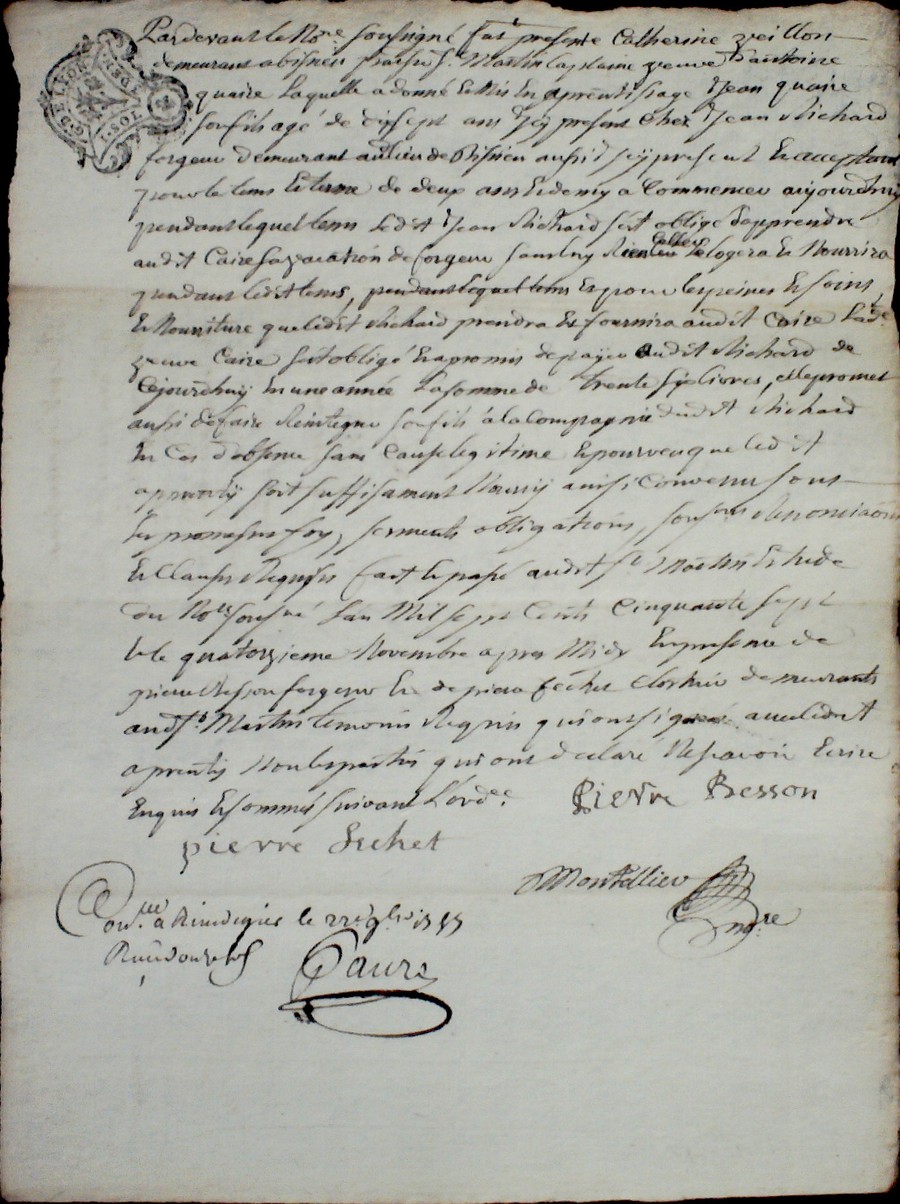 G.D.E LYON
Pardevant le No.re soussigné fut presente Catherine veillon
demeurant a bisnieu paroisse St. Martin Laplaine veuve d'antoine
quaire Laquelle a donné Et mis En aprentissage Jean quaire
son fils agé de dixsept ans Icy present Chez Jean Richard
forgeur demeurant au lieu de Bisnieu aussi Icy present Et acceptant
pour le tems Et terme de deux ans Et demy a Commencer aujourdhuy
pendant lequel tems Ledit Jean Richard s'est obligé d'apprendre
audit Caire sa vacation de forgeur sans luy Rien Celler Le logera Et Nourrira
pendant ledit tems, pendant lequel tems Et pour les peines Et soins
Et Nourriture que ledit Richard prendra Et fournira audit Caire Lad.e
veuve Caire s'est obligé Et a promis de payer audit Richard de
Cejourdhuy En une année La somme de trente six livres, elle promet
aussi de faire Reintegrer son fils à la Compagnie dudit Richard
En Cas d'absence sans Cause legitime Et pourveu que ledit
aprenty soit suffisament Nourry ainsi Convenu sous
les promesses foy, serments obligations, Renonciations
Et Clauses Requises fait Et passé audit St. Martin Etude
du No.re sousné L'an Mil sept Cents Cinquante sept
Et le quatorzieme Novembre apres Midy En presence de
pierre Besson forgeur Et de pierre demeurants
aud St. Martin temoins Requis qui ont signé avec ledit
aprenty Non les parties qui ont declaré Ne scavoir Ecrire
Enquis Et sommés suivant L'ord.ce
Pierre Besson
pierre
Montellier
No.re
Con.lle a Rivedegier le 22e 9bre 1757
Reçu douze sols
Faure